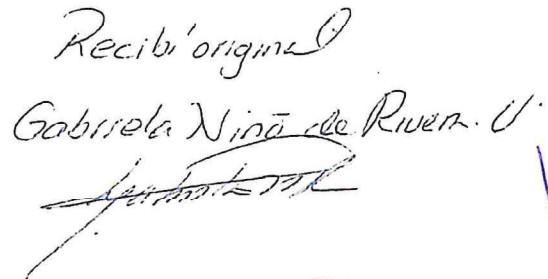 Recibí original
Gabriela Niño de Rivera. U.